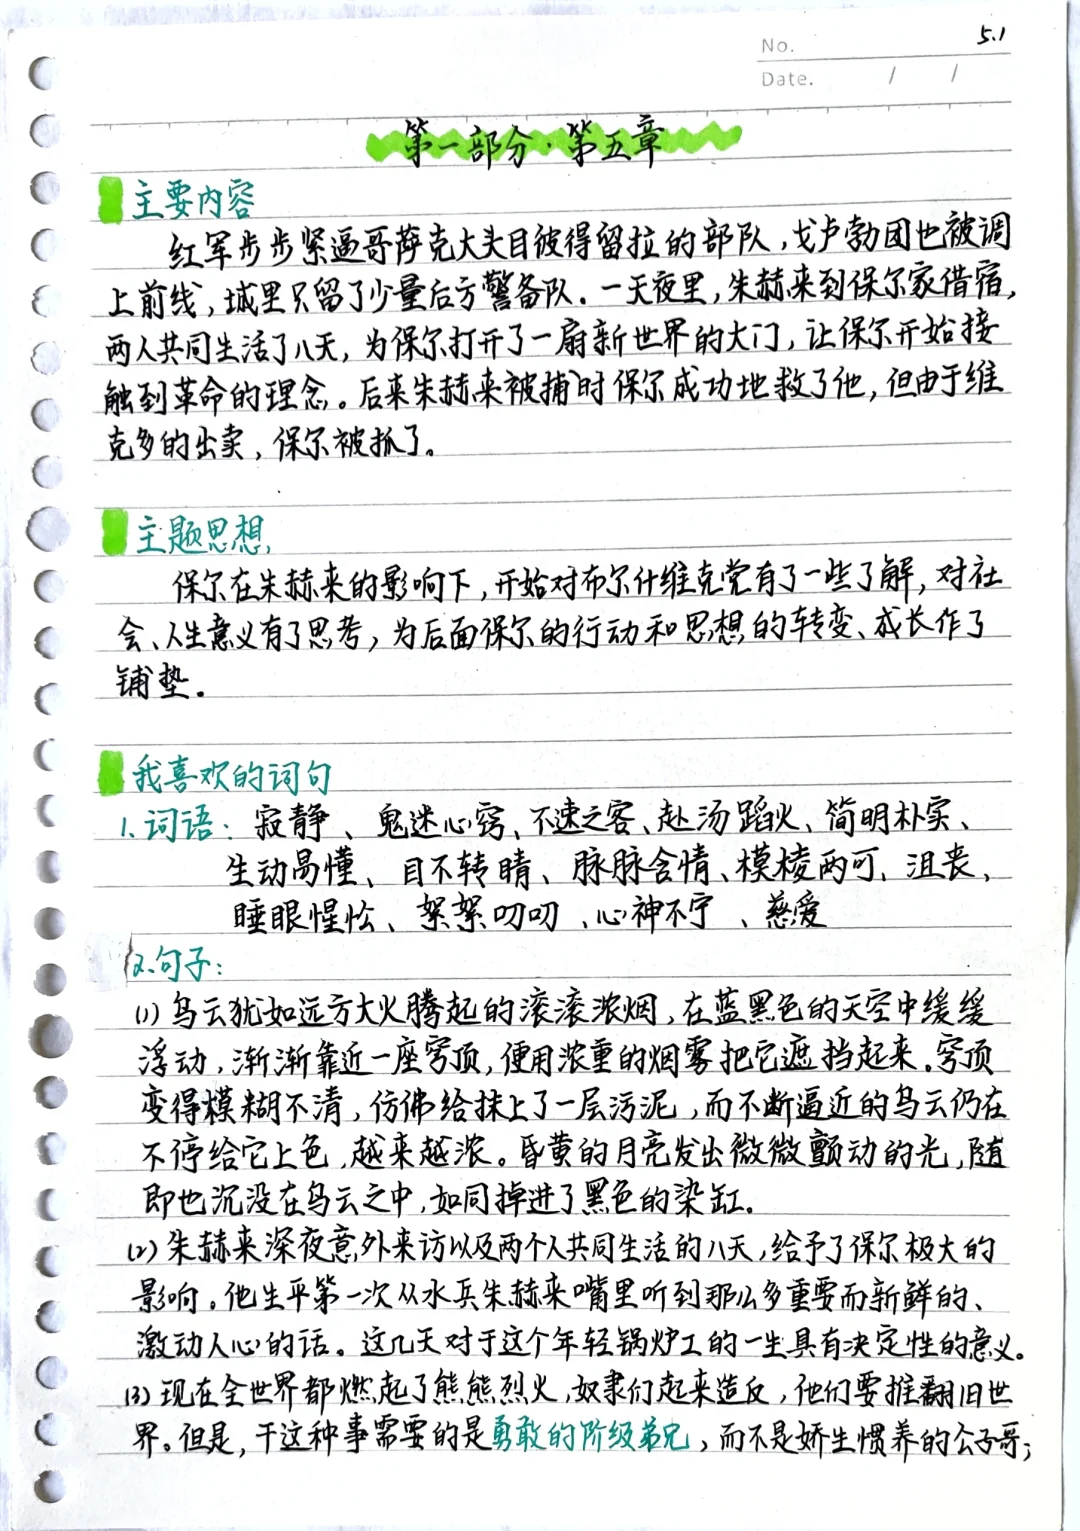 No. 5.1
Date. / /
第一部分·第五章
主要内容
红军步步紧逼哥萨克大头目彼得留拉的部队,戈卢勃团也被调
上前线,城里只留了少量后方警备队。一天夜里,朱赫来到保尔家借宿,
两人共同生活了八天,为保尔打开了一扇新世界的大门,让保尔开始接
触到革命的理念。后来朱赫来被捕时保尔成功地救了他,但由于维
克多的出卖,保尔被抓了。
主题思想
保尔在朱赫来的影响下,开始对布尔什维克党有了一些了解,对社
会、人生意义有了思考,为后面保尔的行动和思想的转变、成长作了
铺垫。
我喜欢的词句
1.词语:寂静、鬼迷心窍、不速之客、赴汤蹈火、简明朴实、
生动易懂、目不转睛、脉脉含情、模棱两可、沮丧、
睡眼惺忪、絮絮叨叨、心神不宁、慈爱
2.句子:
(1)乌云犹如远方大火腾起的滚滚浓烟,在蓝黑色的天空中缓缓
浮动,渐渐靠近一座穹顶,便用浓重的烟雾把它遮挡起来。穹顶
变得模糊不清,仿佛给抹上了一层污泥,而不断逼近的乌云仍在
不停给它上色,越来越浓。昏黄的月亮发出微微颤动的光,随
即也沉没在乌云之中,如同掉进了黑色的染缸。
(2)朱赫来深夜意外来访以及两个人共同生活的八天,给予了保尔极大的
影响。他生平第一次从水兵朱赫来嘴里听到那么多重要而新鲜的、
激动人心的话。这几天对于这个年轻锅炉工的一生具有决定性的意义。
(3)现在全世界都燃起了熊熊烈火,奴隶们起来造反,他们要推翻旧世
界。但是,干这种事需要的是勇敢的阶级弟兄,而不是娇生惯养的公子哥;